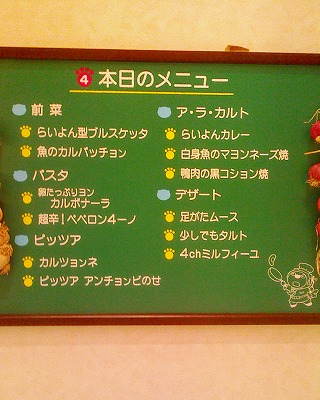 4 本日のメニュー
前菜
らいよん型ブルスケッタ
魚のカルパッチョン
パスタ
卵たっぷりヨン
カルボナーラ
超辛！ペペロン4ーノ
ピッツア
カルツョンネ
ピッツア アンチョンビのせ
ア・ラ・カルト
らいよんカレー
白身魚のマヨンネーズ焼
鴨肉の黒コション焼
デザート
足がたムース
少しでもタルト
4chミルフィーユ